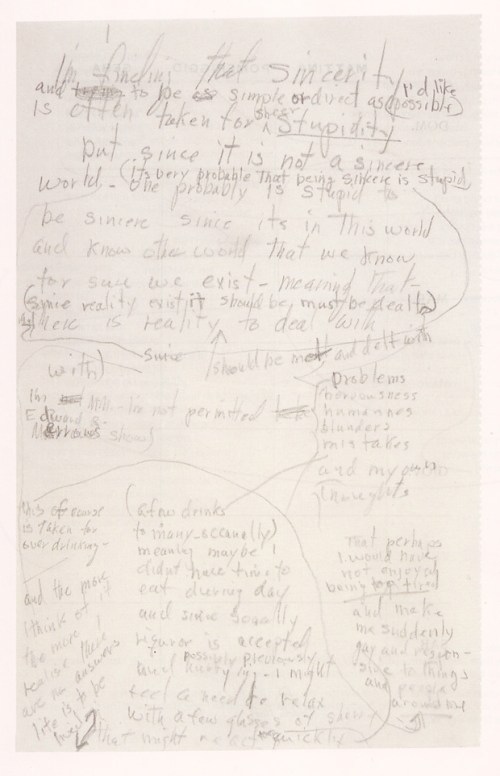 I'm finding that sincerity
and to be as simple or direct as (possible) I'd like
is often taken for sheer stupidity
but since it is not a sincere
world - (its very probable that being sincere is stupid)
one probably is stupid to
be sincere since its in this world
and know other world that we know
for sure we exist - meaning that -
(since reality exist it should be, must be dealt)
there is reality to deal with
since should be met and delt with
with)
problems
nervousness
humanness
blunders
mistakes
and my own
thoughts
Im not permitted
Edward R.
Murrow's show)
this of course
is taken for
over drinking -
and the more
I think of it
the more I
realise there
are no answers
life is to be
(a few drinks
to many occanally)
meaning maybe I
didnt have time to
eat during day
and since soually
is accepted
and possibly previously
I might
feel a need to relax
with a few glasses of sherry
that might react quickly
that perhaps
I would have
not enjoyed
being too tired
and make
me suddenly
gay and respon-
sive to things
and people
around me